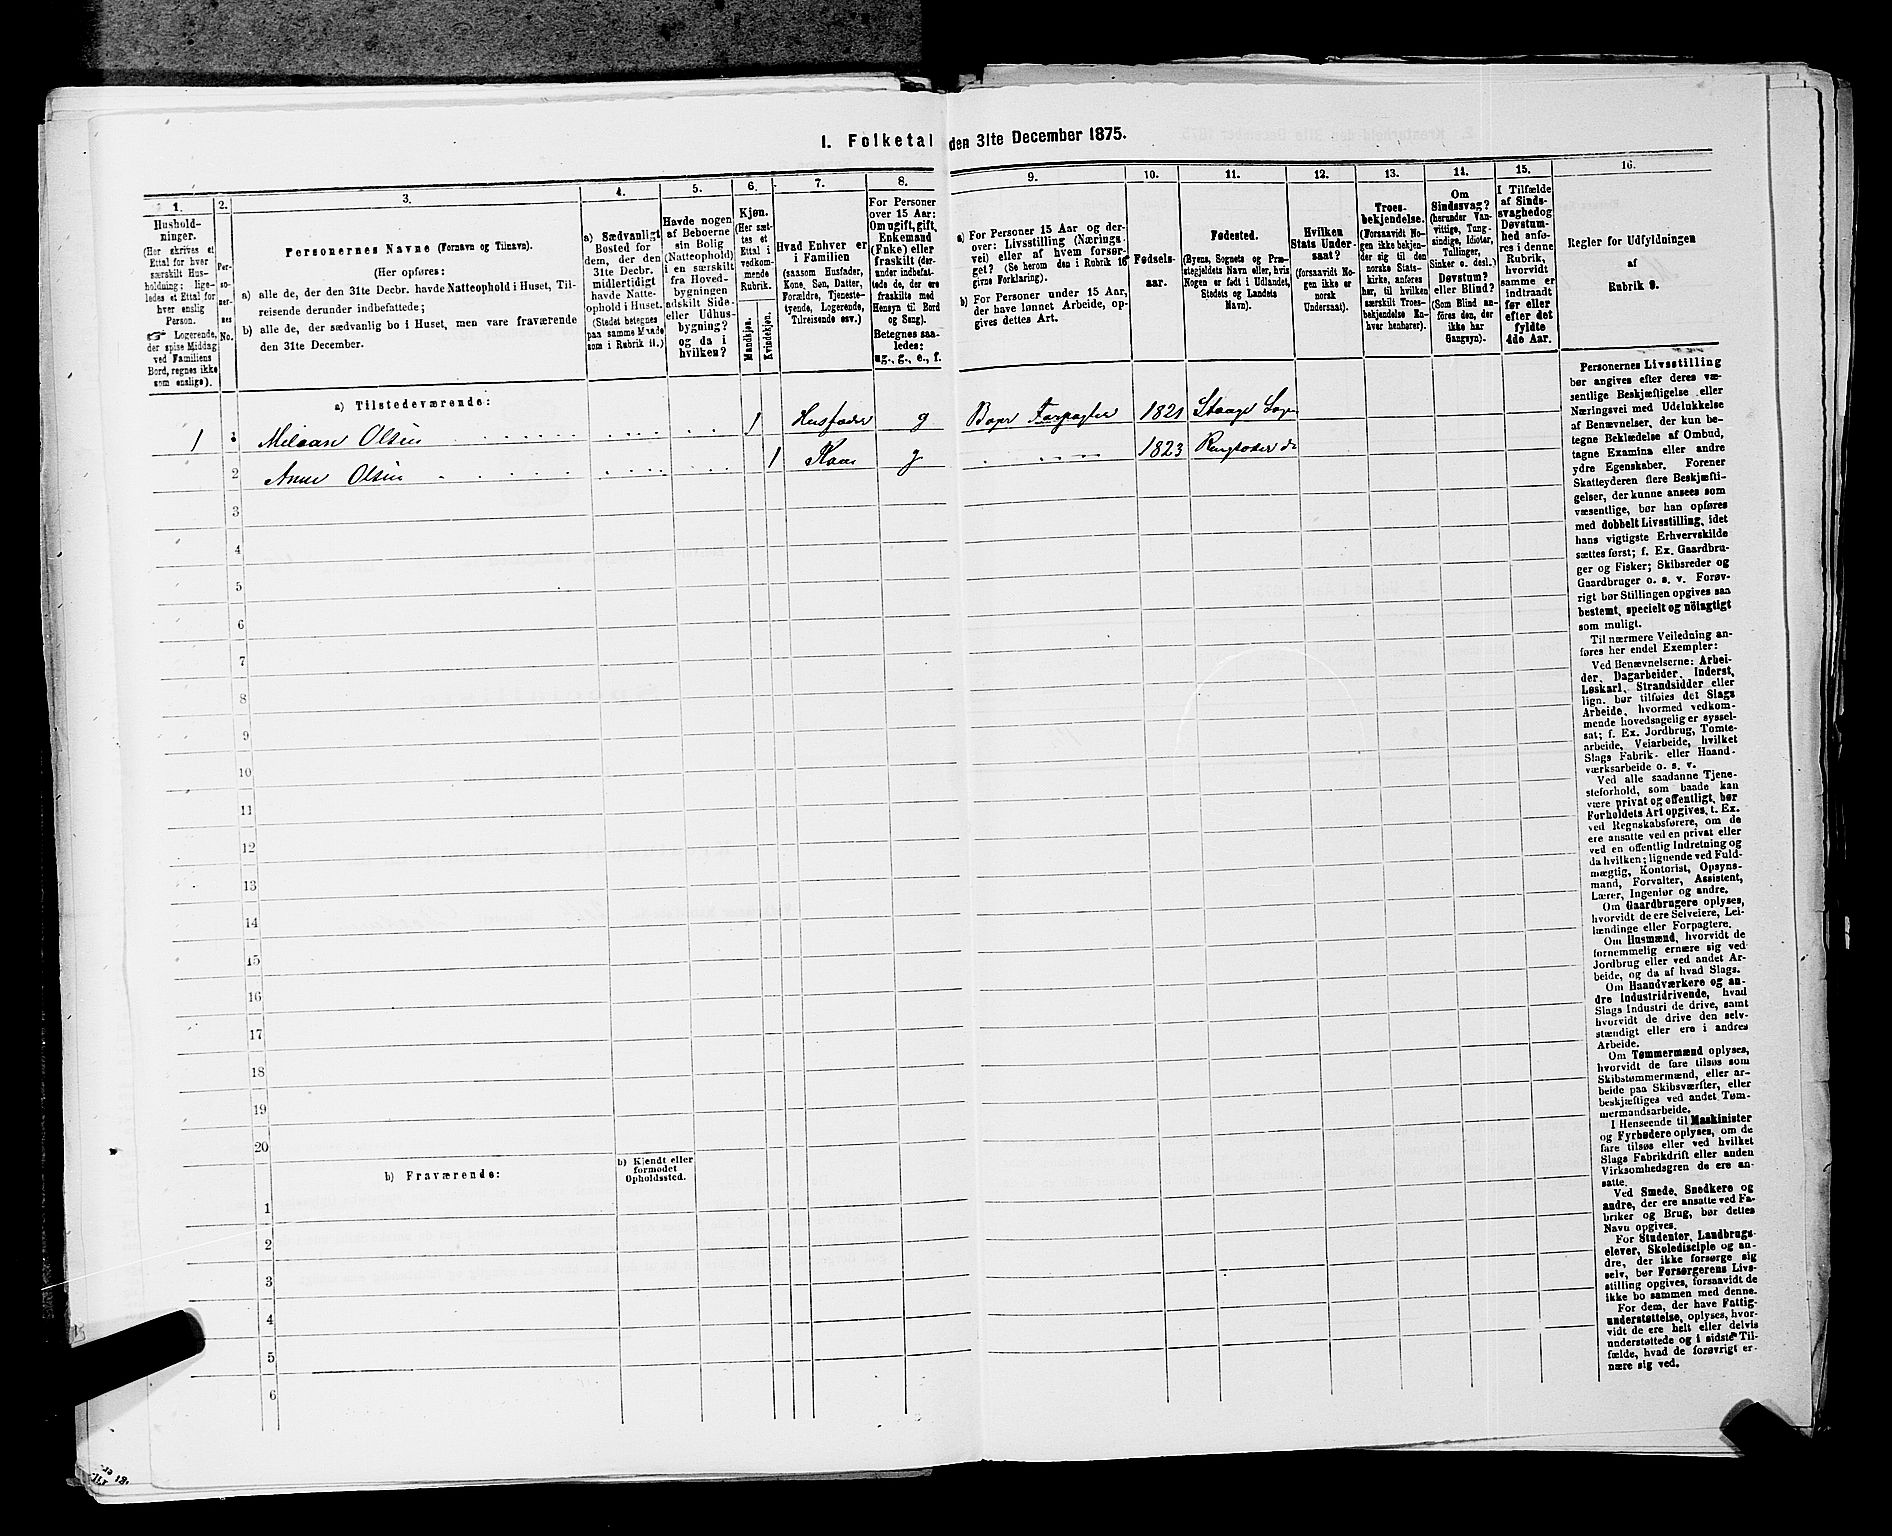 1. Folketal den 31te December 1875.
1. 2. 3. 4. 5. 6. 7. 8. 9. 10. 11. 12. 13. 14. 15. 16.
Hushold-
ninger.
(Her skrives et
Ettal for hver
særskilt Hus-
holdning; lige-
ledes et Ettal for
hver enslig
Person.
☞ Logerende,
der spise Middag
ved Familiens
Bord, regnes ikke
som enslige).
Per-
so-
ner-
nes
No.
Personernes Navne (Fornavn og Tilnavn).
(Her opføres:
a) alle de, der den 31te Decbr. havde Natteophold i Huset, Til-
reisende derunder indbefattede;
b) alle de, der sædvanlig bo i Huset, men vare fraværende
den 31te December.
a) Sædvanligt
Bosted for
dem, der den
31te Decbr.
midlertidigt
havde Natte-
ophold i Huset.
(Stedet betegnes
paa samme Maade
som i Rubrik 11.)
Havde nogen
af Beboerne
sin Bolig
(Natteophold)
i en særskilt
fra Hoved-
bygningen
adskilt Side-
eller Udhus-
bygning?
og da i
hvilken?
Kjøn.
(Her sæt-
tes et
Ettal i
vedkom-
mende
Rubrik.
Mandkjøn.
Kvindekjøn.
Hvad Enhver er
i Familien
(saasom Husfader,
Kone, Søn, Datter,
Forældre, Tjeneste-
tyende, Logerende,
Tilreisende osv.)
For Personer
over 15 Aar:
Om ugift, gift,
Enkemand
(Enke) eller
fraskilt (der-
under indbefat-
tede de, der ere
fraskilte med
Hensyn til Bord
og Seng).
Betegnes saa-
ledes:
ug., g., e., f.
a) For Personer 15 Aar og der-
over: Livsstilling (Nærings-
vei) eller af hvem forsør-
get? (Se herom den i Rubrik 16
givne Forklaring).
b) For Personer under 15 Aar,
der have lønnet Arbeide, op-
gives dettes Art.
Fødsels-
aar.
Fødested.
(Byens, Sognets og Præ-
stegjeldets Navn eller, hvis
Nogen er født i Udlandet,
Stedets og Landets
Navn).
Hvilken
Stats Under-
saat?
(forsaavidt No-
gen ikke er
norsk
Undersaat).
Troes-
bekjendelse.
(Forsaavidt No-
gen ikke bekjen-
der sig til den
norske Stats-
kirke, anføres
her, til hvilken
særskilt Troes-
bekjendelse En-
hver henhører).
Om
Sindssvag?
(herunder Van-
vittige, Tung-
sindige, Idioter,
Tullinger,
Sinker o. desl.)
Døvstum?
eller Blind?
(Som Blind an-
føres den, der
ikke har
Gangsyn).
I Tilfælde
af Sinds-
svaghed og
Døvstum-
hed anfø-
res i denne
Rubrik,
hvorvidt
samme er
indtraadt
før eller
efter det
fyldte
4de Aar.
Regler for Udfyldningen
af
Rubrik 9.
a) Tilstedeværende:
1 1 Olsen 1 Husfader g Forpagter 1821
2 Anne Olsen 1 Kone g 1823
3
4
5
6
7
8
9
10
11
12
13
14
15
16
17
18
19
20
b) Fraværende:
b) Kjendt eller
formodet
Opholdssted.
1
2
3
4
5
6
Personernes Livsstilling
bør angives efter deres væ-
sentlige Beskjæftigelse eller
Næringsvei med Udelukkelse
af Benævnelser, der kun be-
tegne Beklædelse af Ombud,
tagne Examina eller andre
ydre Egenskaber. Forener
Skatteyderen flere Beskjæfti-
gelser, der kunne ansees som
væsentlige, bør han opføres
med dobbelt Livsstilling, idet
hans vigtigste Erhvervskilde
sættes først; f. Ex. Gaardbru-
ger og Fisker; Skibsreder og
Gaardbruger o. s. v. Forøv-
rigt bør Stillingen opgives saa
bestemt, specielt og nöiagtigt
som muligt.
Til nærmere Veiledning an-
føres her endel Exempler:
Ved Benævnelserne: Arbei-
der, Dagarbeider, Inderst,
Løskarl, Strandsidder eller
lign. bør tilføies det Slags
Arbeide, hvormed vedkom-
mende hovedsagelig er syssel-
sat; f. Ex. Jordbrug, Tomte-
arbeide, Veiarbeide, hvilket
Slags Fabrik- eller Haand-
værksarbeide o. s. v.
Ved alle saadanne Tjene-
steforhold, som baade kan
være privat og offentligt, bør
Forholdets Art opgives, t. Ex.
ved Regnskabsførere, om de
ere ansatte ved en privat eller
ved en offentlig Indretning og
da hvilken; lignende ved Fuld-
mægtig, Kontorist, Opsyns-
mand, Forvalter, Assistent,
Lærer, Ingeniør og andre.
Om Gaardbrugere oplyses,
hvorvidt de ere Selveiere, Lei-
lændinge eller Forpagtere.
Om Husmænd, hvorvidt de
fornemmelig ernære sig ved
Jordbrug eller ved andet Ar-
beide, og da af hvad Slags.
Om Haandværkere og an-
dre Industridrivende, hvad
Slags Industri de drive, samt
hvorvidt de drive den selv-
stændigt eller ere i andres
Arbeide.
Om Tømmermænd oplyses,
hvorvidt de fare tilsøs som
Skibstømmermænd, eller ar-
beide paa Skibsværfter, eller
beskjæftiges ved andet Tøm-
mermandsarbeide.
I Henseende til Maskinister
og Fyrbødere oplyses, om de
fare tilsøs eller ved hvilket
Slags Fabrikdrift eller anden
Virksomhedsgren de ere an-
satte.
Ved Smede, Snedkere og
andre, der ere ansatte ved Fa-
briker og Brug, bør dettes
Navn opgives.
For Studenter, Landbrugs-
elever, Skoledisciple og an-
dre, der ikke forsørge sig
selv, bør Forsørgerens Livs-
stilling opgives, forsaavidt de
ikke bo sammen med denne.
For dem, der have Fattig-
understøttelse, oplyses, hvor-
vidt de ere helt eller delvis
understøttede og i sidste Til-
fælde, hvad de forøvrigt er-
nære sig ved.